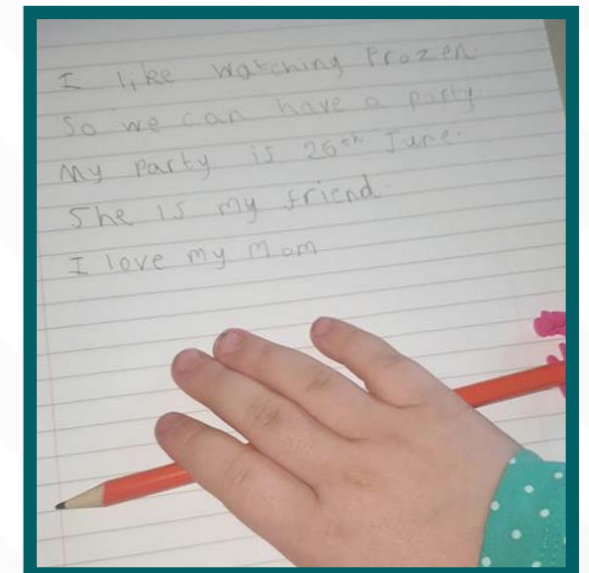 I like watching Frozen.
So we can have a party.
My party is 26th June.
She is my friend.
I love my Mom